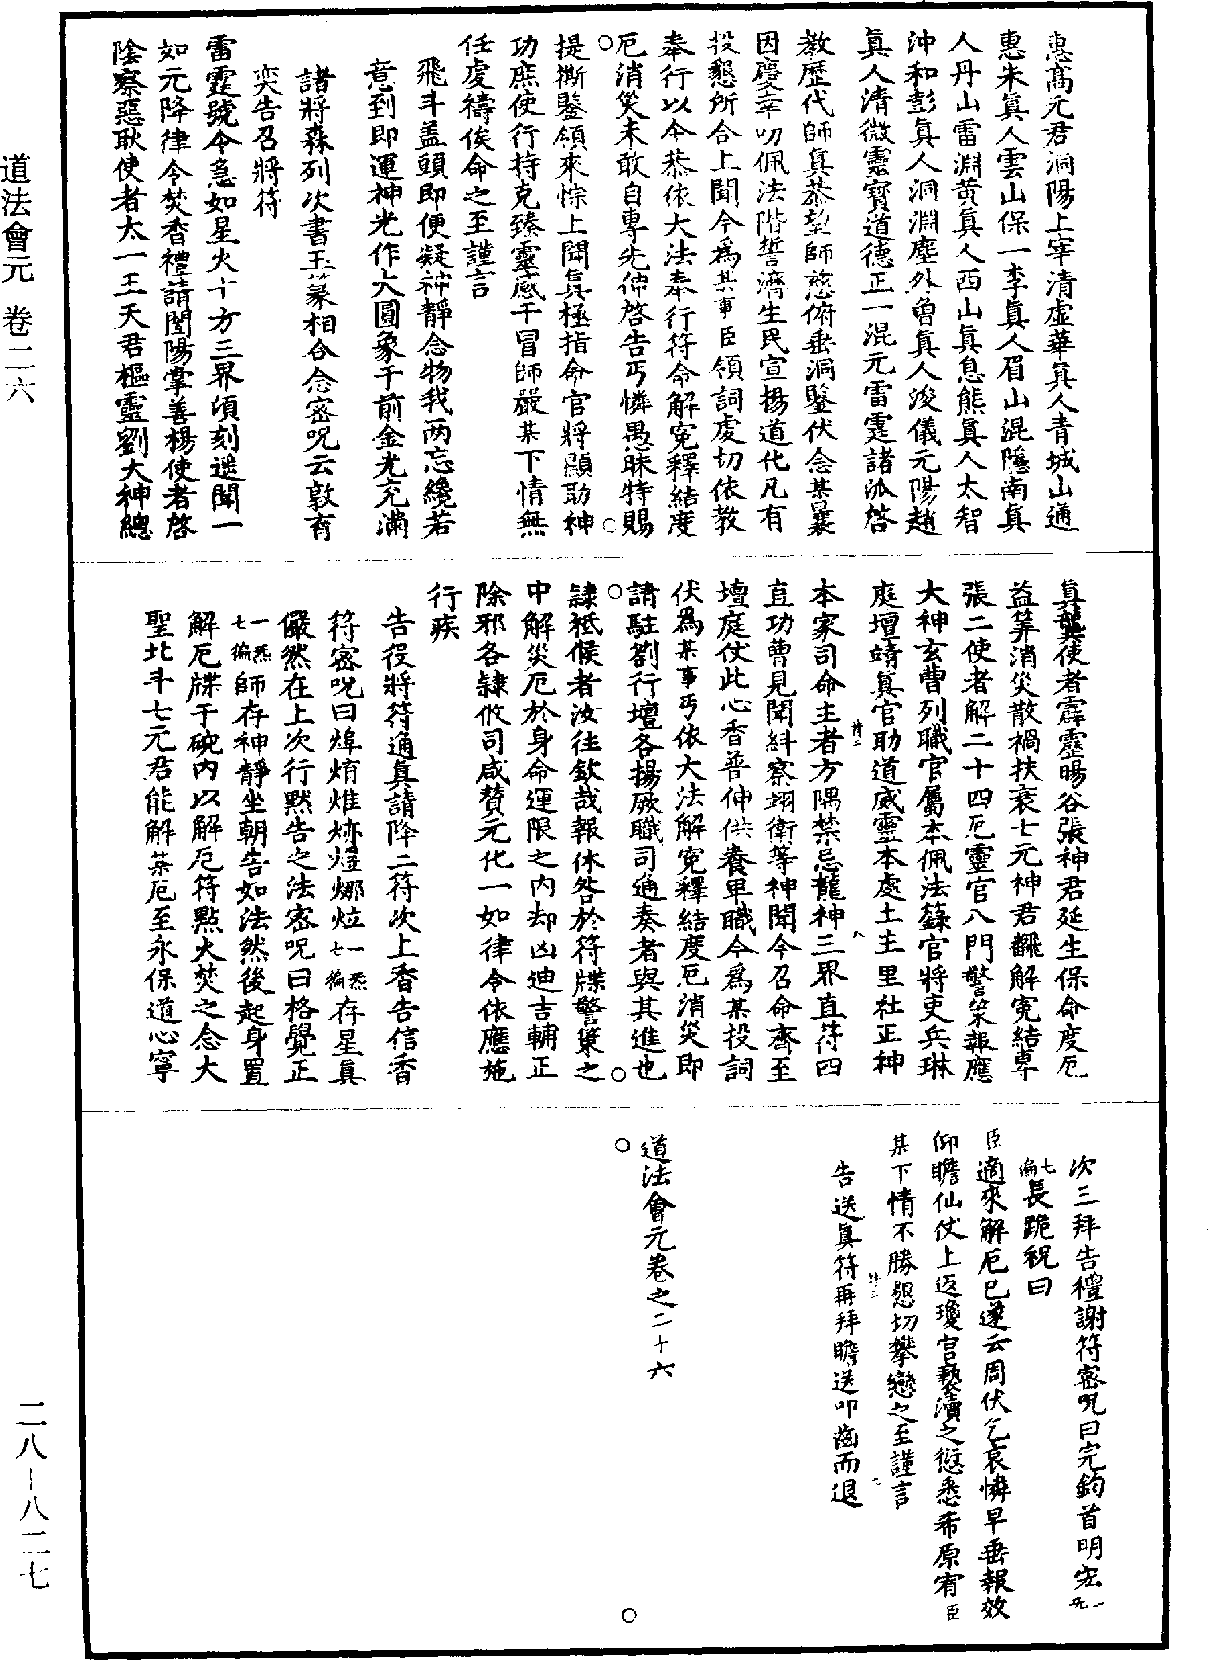 惠高元君洞陽上宰清虛華真人青城山通
惠朱真人雲山保一李真人眉山混隱南真
人丹山雷淵黃真人西山真息熊真人太智
沖和彭真人洞淵塵外曾真人浚儀元陽趙
真人清微靈寶道德正一混元雷霆諸派啓
教歷代師真恭望師慈俯垂洞鑒伏念某曩
因慶幸叨佩法階誓濟生民宣揚道化凡有
投懇所合上聞今為某事臣領詞虔切依教
奉行以今恭依大法奉行符命解冤釋結度
厄消災未敢自專先伸啓告丐憐愚昧特賜
提撕鑒領來悰上聞真極指命官將顯助神
功庶使行持克臻靈感干冒師嚴某下情無
任虔禱俟命之至謹言
飛斗蓋頭即便凝神靜念物我两忘纔若
意到即運神光作大圓象于前金光充滿
諸將森列次書玉篆相合念密咒云敦育
奕告召將符
雷霆號令急如星火十方三界頃刻遥聞一
如元降律令焚香禮請閶陽掌善楊使者啓
陰察惡耿使者太一王天君樞靈劉大神總
真龔使者霹靂暘谷張神君延生保命度厄
益筭消災散禍扶衰七元神君翻解寃結專
張二使者解二十四厄靈官八門警策報應
大神玄曹列職官屬本佩法籙官將吏兵琳
庭壇靖真官助道威靈本處土主里社正神
本家司命主者方隅禁忌龍神三界直符四
直功曹見聞糾察翊衛等神聞今召命齊至
壇庭仗此心香普伸供養畢職今為某投詞
伏為某事丐依大法解寃釋結度厄消災即
請駐劄行壇各揚厥職司通奏者與其進也
隷祗候者汝往欽哉報休咎於符牒警策之
中解災厄於身命運限之内却凶迪吉輔正
除邪各隷攸司咸贊元化一如律令依應施
行疾
告役將符通真請降二符次上香告信香
符密咒曰㷆焴㷅㷇燈㷈㷉一炁七徧存星真
儼然在上次行默告之法密咒曰格覺正
一炁七徧師存神靜坐朝告如法然後起身置
解厄牒于碗内以解厄符點火焚之念大
聖北斗七元君能解某厄至永保道心寧
次三拜告禮謝符密咒曰完鈞首明宏一炁
七徧長跪祝曰
臣適來解厄已遂云周伏乞哀憐早垂報效
仰瞻仙仗上返瓊宫褻瀆之愆悉希原宥臣
某下情不勝懇切攀戀之至謹言
告送真符再拜瞻送叩齒而退
道法會元卷之二十六
道法會元 卷二六
二八–八二七